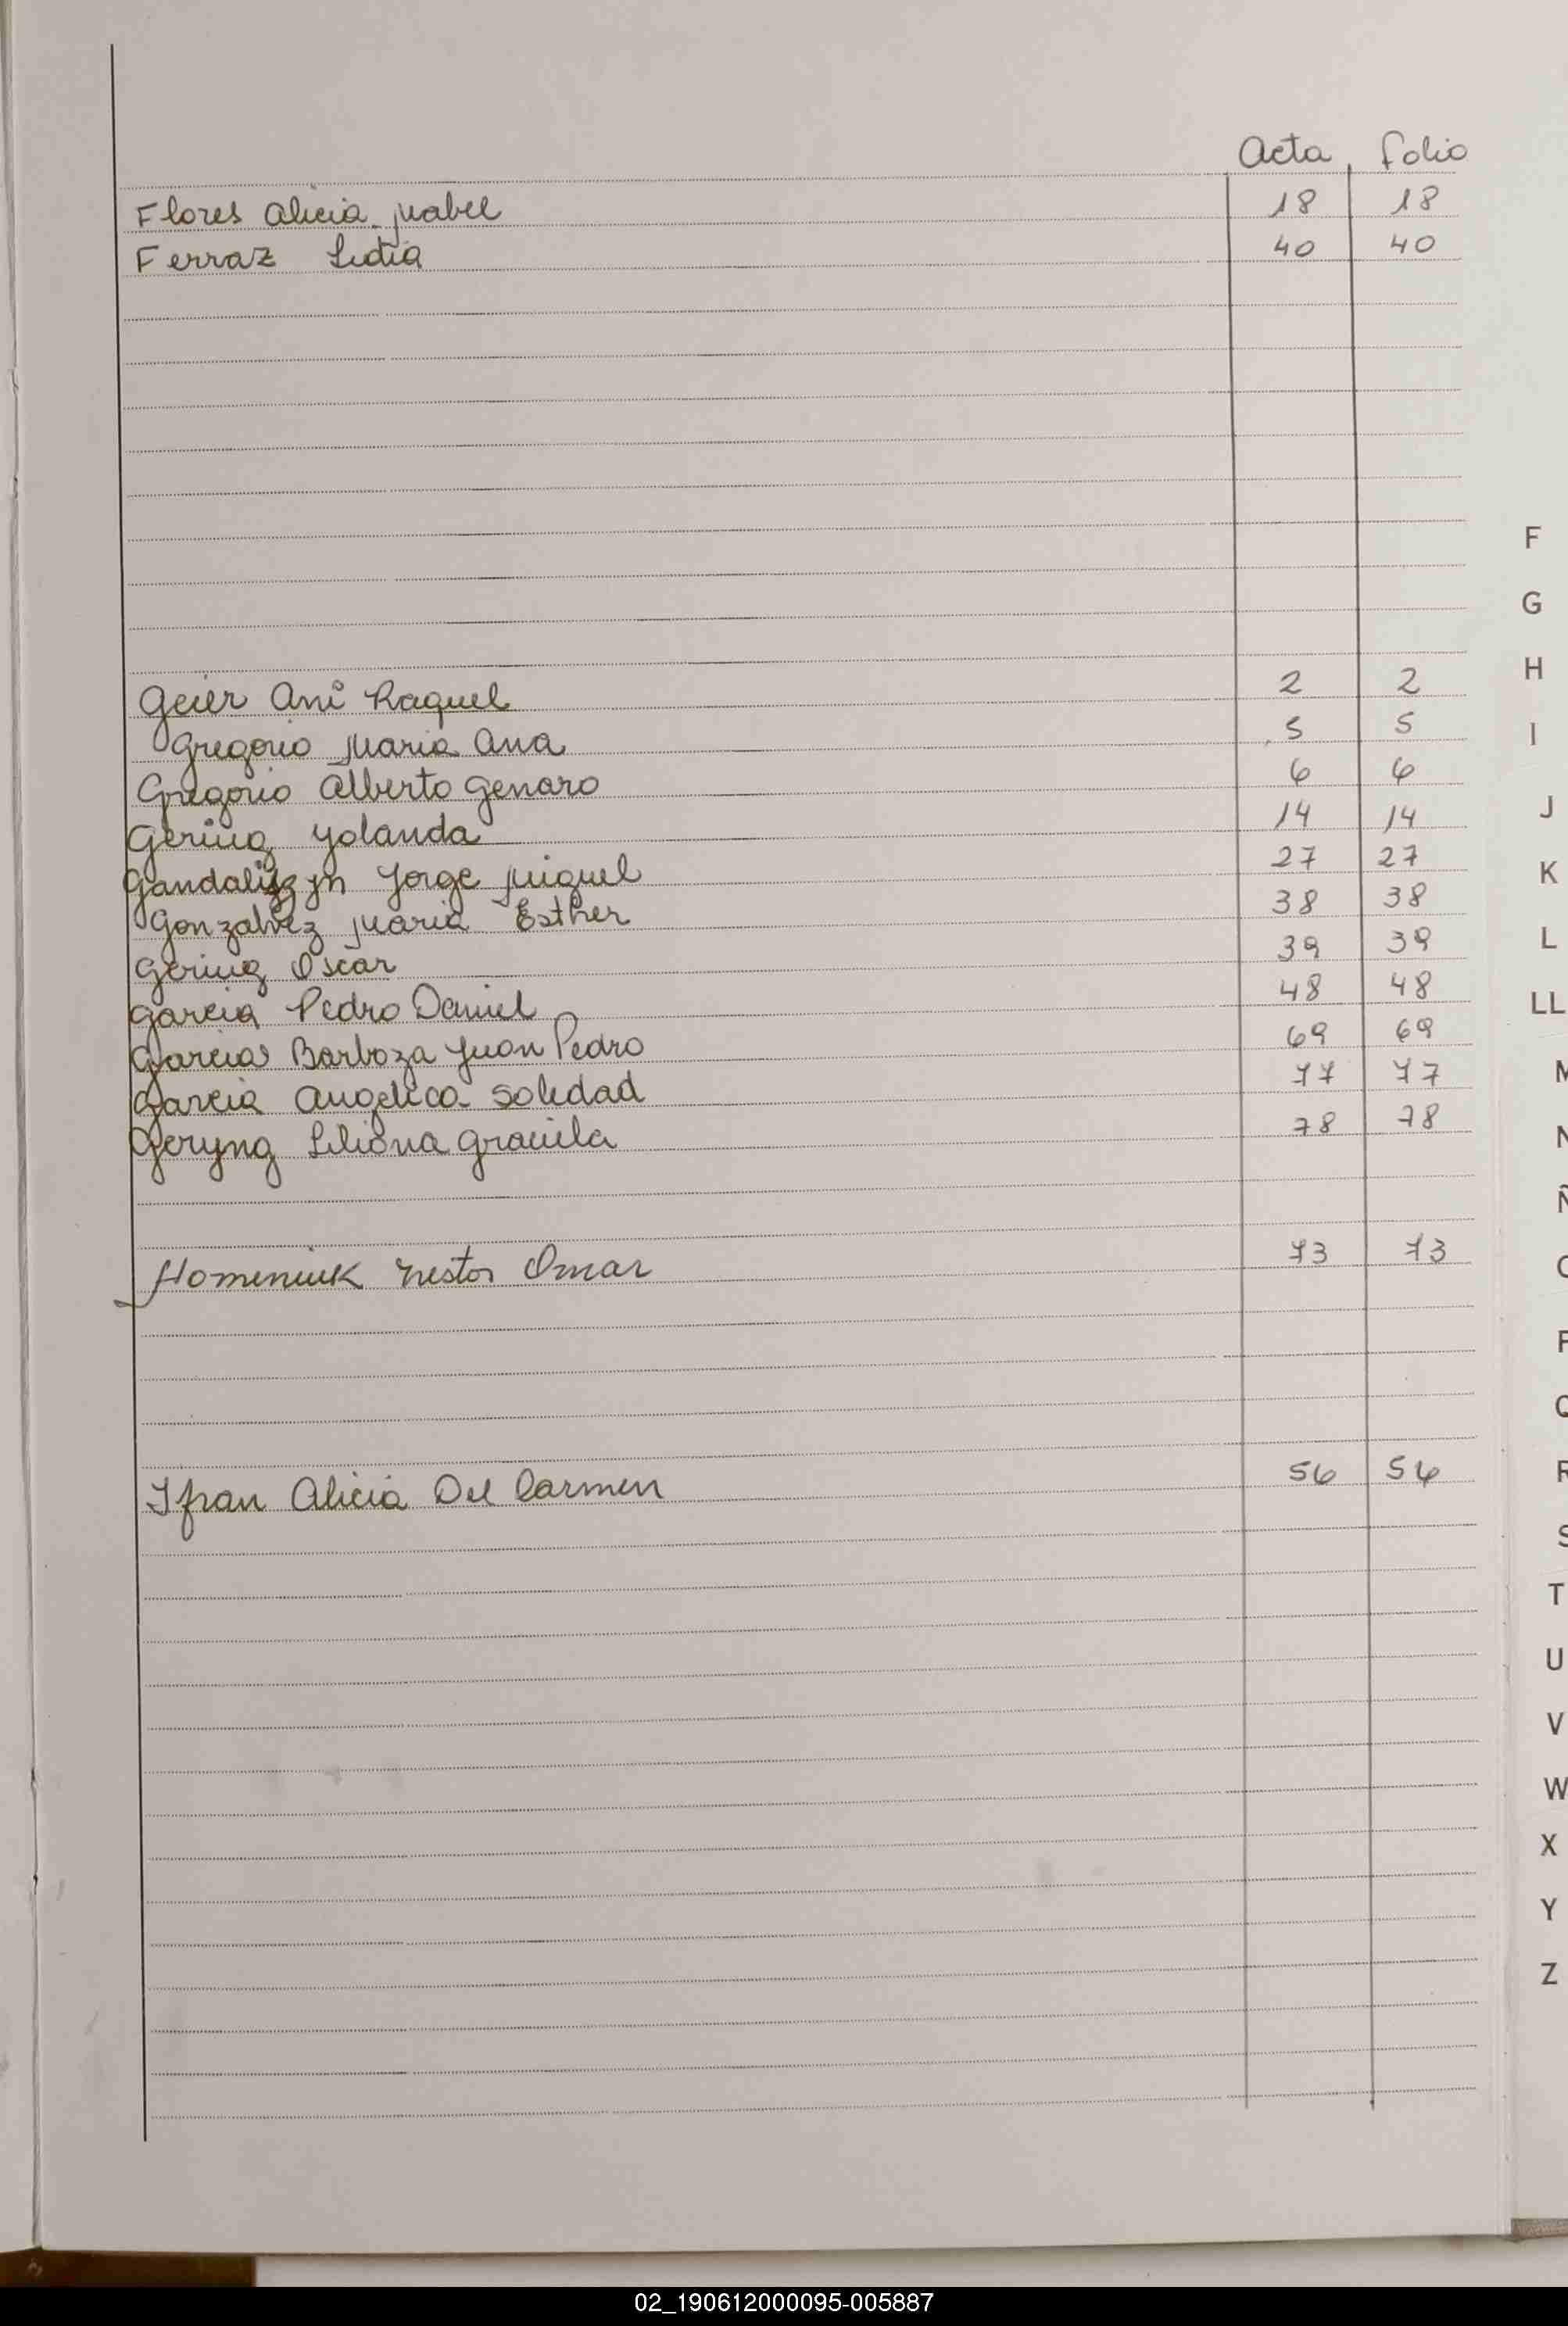 Acta folio
Flores Alicia Mabel 18 18
Ferraz Lidia 40 40
Geier Ani Raquel 2 2
Gregorio Maria Ana 5 5
Gregorio Alberto Genaro 6 6
Gering Yolanda 14 14
Jorge Miguel 27 27
Gonzalvez Maria Esther 38 38
Gering Oscar 39 39
Garcia Pedro Daniel 48 48
Garcias Barboza Juan Pedro 69 69
Garcia Angelica Soledad 77 77
Geryng Liliana Graciela 78 78
Homeniuk Nestor Omar 73 73
Ifran Alicia Del Carmen 56 56
F
G
H
I
J
K
L
LL
M
N
Ñ
O
P
Q
R
S
T
U
V
W
X
Y
Z
02_190612000095-005887